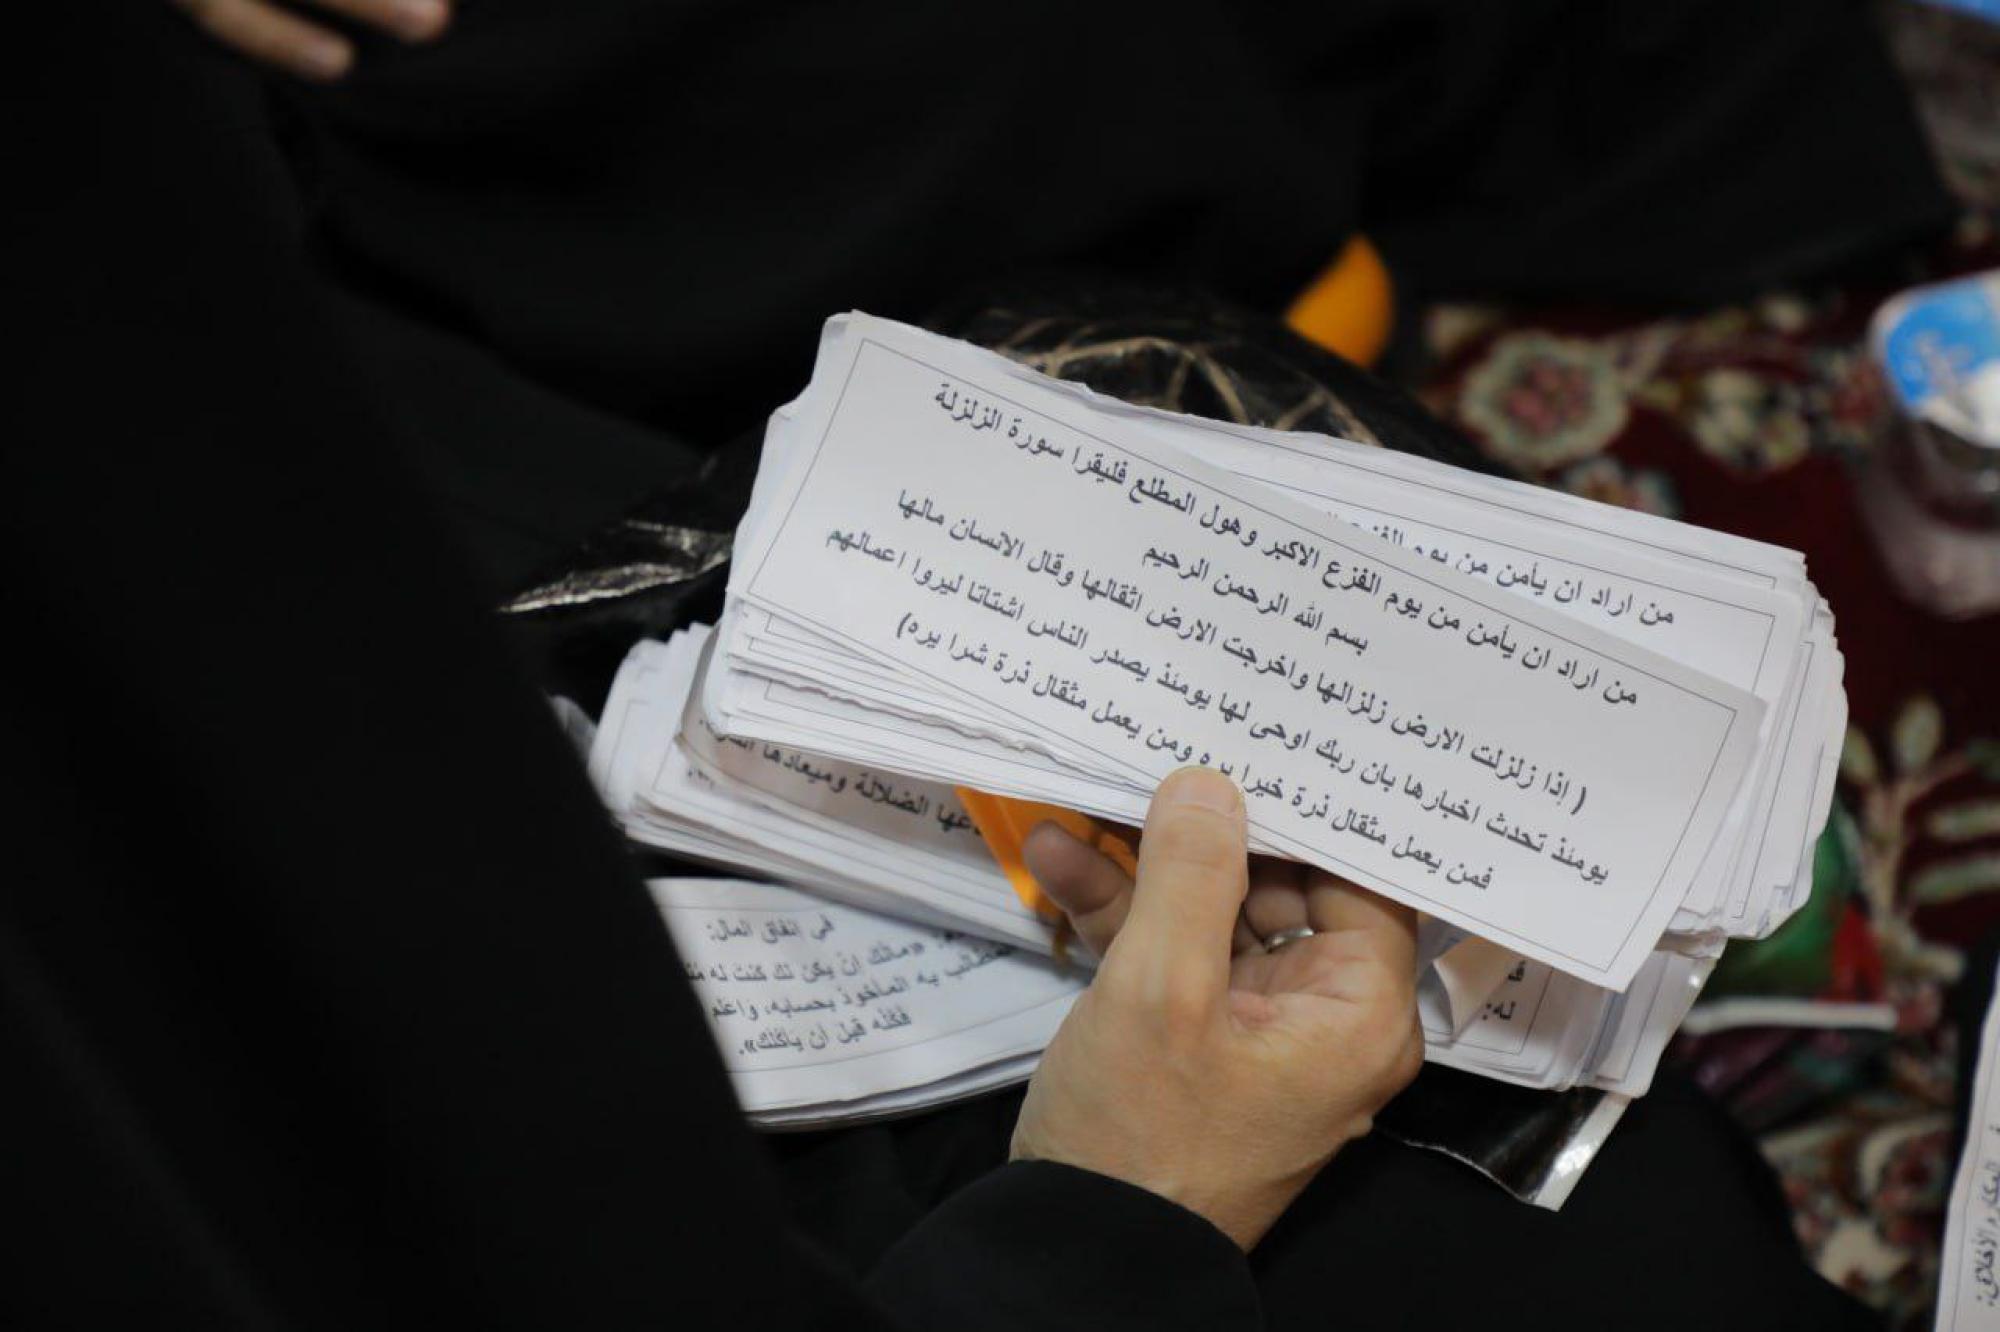 من اراد ان يأمن من يوم الفزع الاكبر وهول المطلع فليقرا سورة الزلزلة
بسم الله الرحمن الرحيم
( إذا زلزلت الارض زلزالها واخرجت الارض اثقالها وقال الانسان مالها
يومئذ تحدث اخبارها بان ربك اوحى لها يومئذ يصدر الناس اشتاتا ليروا اعمالهم
فمن يعمل مثقال ذرة خيرا يره ومن يعمل مثقال ذرة شرا يره)
من اراد ان يأمن من يوم الفزع
الضلالة وميعادها
في إنفاق المال:
«مالك إنْ يكن لك كنت له
به المأخوذ بحسابه، واعلم
فكُلْه قبل أن يأكلك».
له: